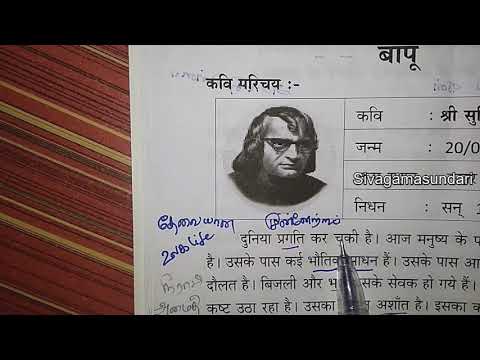 बापू
कवि परिचय :-
कवि : श्री
जन्म : 20/0
Sivagamasundari
निधन : सन्
தேவையான முன்னேற்றம்
life
दुनिया प्रगति कर चुकी है। आज मनुष्य के
है। उसके पास कई भौतिक साधन हैं। उसके पास
दौलत है। बिजली और के सेवक हो गये हैं।
कष्ट उठा रहा है। उसका अशाँत है। इसका